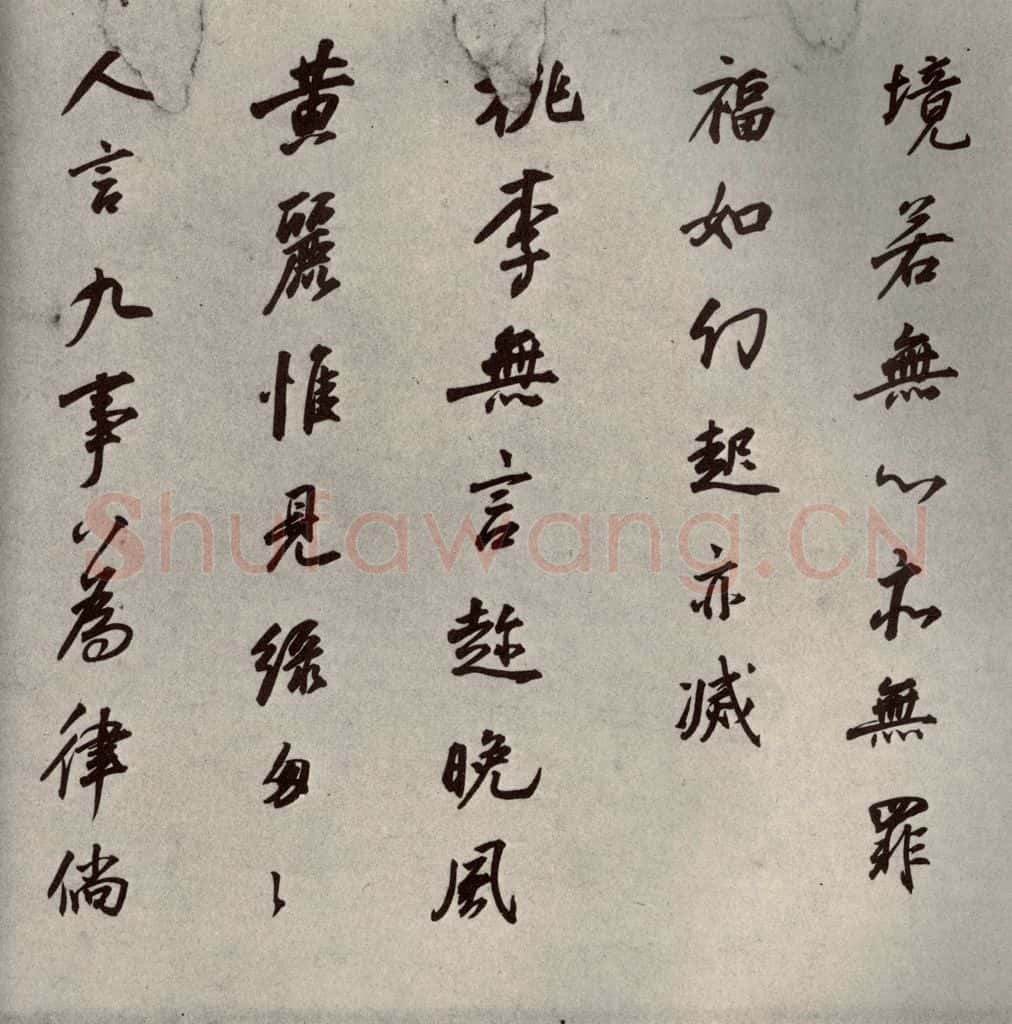 境若無心亦無罪
福如幻起亦滅
桃李無言趂晚風
黄麗惟見緑匆〻
人言九事八為律倘
Shufawang.CN